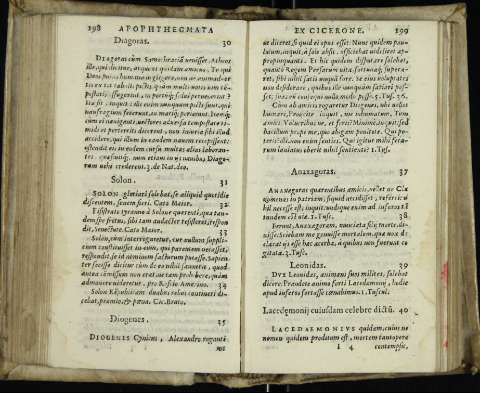 198 APOPHTHEGMATA
Diagoras. 30
DIAGORAS cùm Samothraciā venisset, Atheos
ille, qui dicitur, atque ei quidam amicus, Tu qui
Deos putas humana negligere, nónne animadver-
tis ex tot tabulis pictis, quàm multi votis vim tē-
pestatis effugerint, in portūq; salvi pervenerint?
Ita fit, inquit: illi enim nusquam picti sunt, qui
naufragium fecerunt, in mariq; perierunt. Idemq;
cùm ei naviganti, vectores adversa tempestate ti-
midi et perterriti dicerent, non iniuria sibi illud
accidere, qui illum in eandem navem recepissent:
ostendit eis in eodem cursu multas alias laboran-
tes, quæsivitq; num etiam in iis navibus Diago-
ram vehi crederent. 3. de Nat. deo.
Solon. 31
SOLON gloriari solebat, se aliquid quotidie
discentem, senem fieri. Cato Maior. 32
Pisistrato tyranno à Solone quærenti, qua tan-
dem spe fretus, sibi tam audacter resisteret, respon
dit, Senectute. Cato Maior. 33
Solon, cùm interrogaretur, cur nullum suppli-
cium constituisset in eum, qui parentem necasset,
respondit, se id neminem facturum putasse. Sapien
ter fecisse dicitur cùm de eo nihil sanxerit, quod
antea cōmissum non erat, ne tam prohibere, quàm
admonere videretur. pro Roscio Amerino. 34
Solon Rempublicam duabus rebus contineri di-
cebat, præmio, & pœna. Cic. Bruto.
Diogenes. 35
DIOGENES Cynicus, Alexandro roganti
EX CICERONE. 199
ut diceret, si quid ei opus esset: Nunc quidem pau-
lulum, inquit, à sole absit. offecerat videlicet ap-
propinquanti. Et hic quidem disputare solebat,
quantò Regem Persarum vita, fortunaq; supera-
ret, sibi nihil satis unquā fore. Se eius voluptates
non desiderare, quibus ille nunquam satiari pos-
set: suas eum consequi nullo modo posse. 5. Tus. 36.
Cùm ab amicis rogaretur Diogenes, ubi vellet
humari, Proiicite inquit, me inhumatum. Tum
amici, Volucribúsne, et feris? Minimè, inquit, sed
bacillum prope me, quo abigam ponitote. Qui po-
teris? illi, non enim senties. Qui igitur mihi fera-
rum laniatus oberit nihil sentienti? 1. Tus.
Anaxagoras. 37
ANAXAGORAS quærentibus amicis, vellet ne Cla
zomenas in patriam, si quid accidisset, referri: ni
hil necesse est, inquit, undique enim ad inferos tā
tundem est viæ. 1. Tusc. 38.
Ferunt Anaxagoram, nunciata filij morte, di-
xisse: Sciebam me genuisse mortalem, quæ vox de
clarat iis esse hæc acerba, à quibus non fuerint co
gitata. 3. Tusc.
Leonidas. 39
DUX Leonidas, animans suos milites, solebat
dicere. Prandete animo forti Lacedæmonij, hodie
apud inferos fortasse cœnabimus. 1. Tuscul.
Lacedęmonij cuiusdam celebre dictū. 40
LACEDÆMONIUS quidam, cuius ne
nomen quidem proditum est, mortem tantopere
I 4 contempsit,